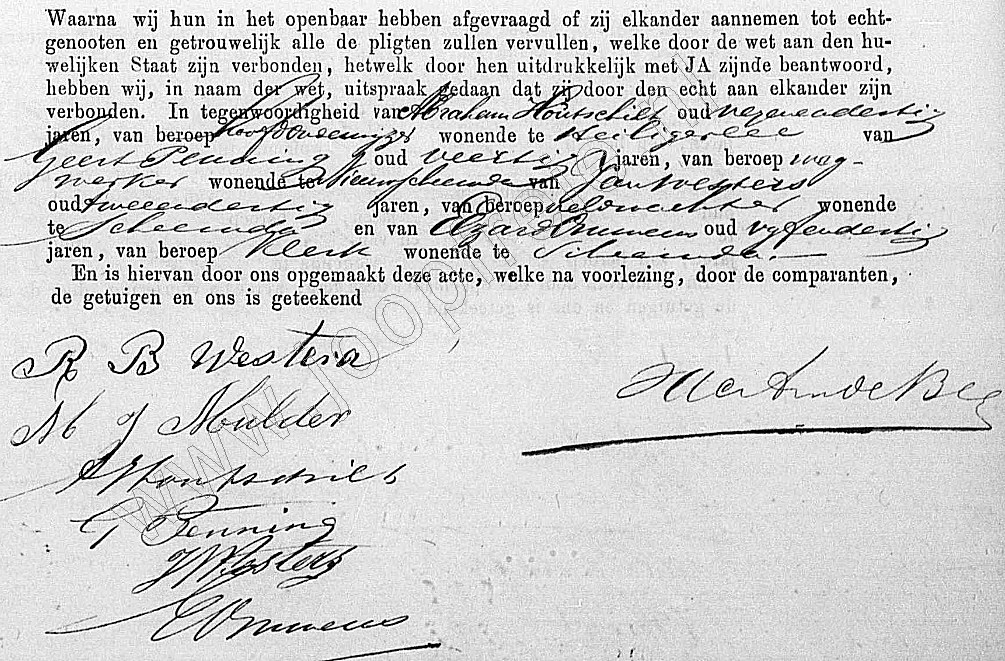 Waarna wij hun in het openbaar hebben afgevraagd of zij elkander aannemen tot echt-
genooten en getrouwelijk alle de pligten zullen vervullen, welke door de wet aan den hu-
welijken Staat zijn verbonden, hetwelk door hen uitdrukkelijk met JA zijnde beantwoord,
hebben wij, in naam der wet, uitspraak gedaan dat zij door den echt aan elkander zijn
verbonden. In tegenwoordigheid van Abraham Houtschilt oud negenendertig
jaren, van beroep Hoofdonderwijzer wonende te Heiligerlee van
Geert Penning oud veertig jaren, van beroep wag-
werker wonende te Nieuwscheemda van Jan Westers
oud tweeendertig jaren, van beroep veldwachter wonende
te Scheemda en van Edzard Ommens oud vyfendertig
jaren, van beroep Klerk wonende te Scheemda.
En is hiervan door ons opgemaakt deze acte, welke na voorlezing, door de comparanten,
de getuigen en ons is geteekend
R B Westera
M J Mulder
AHoutschilt
G Penning
J Westers
EOmmens
www.joopholt.nl